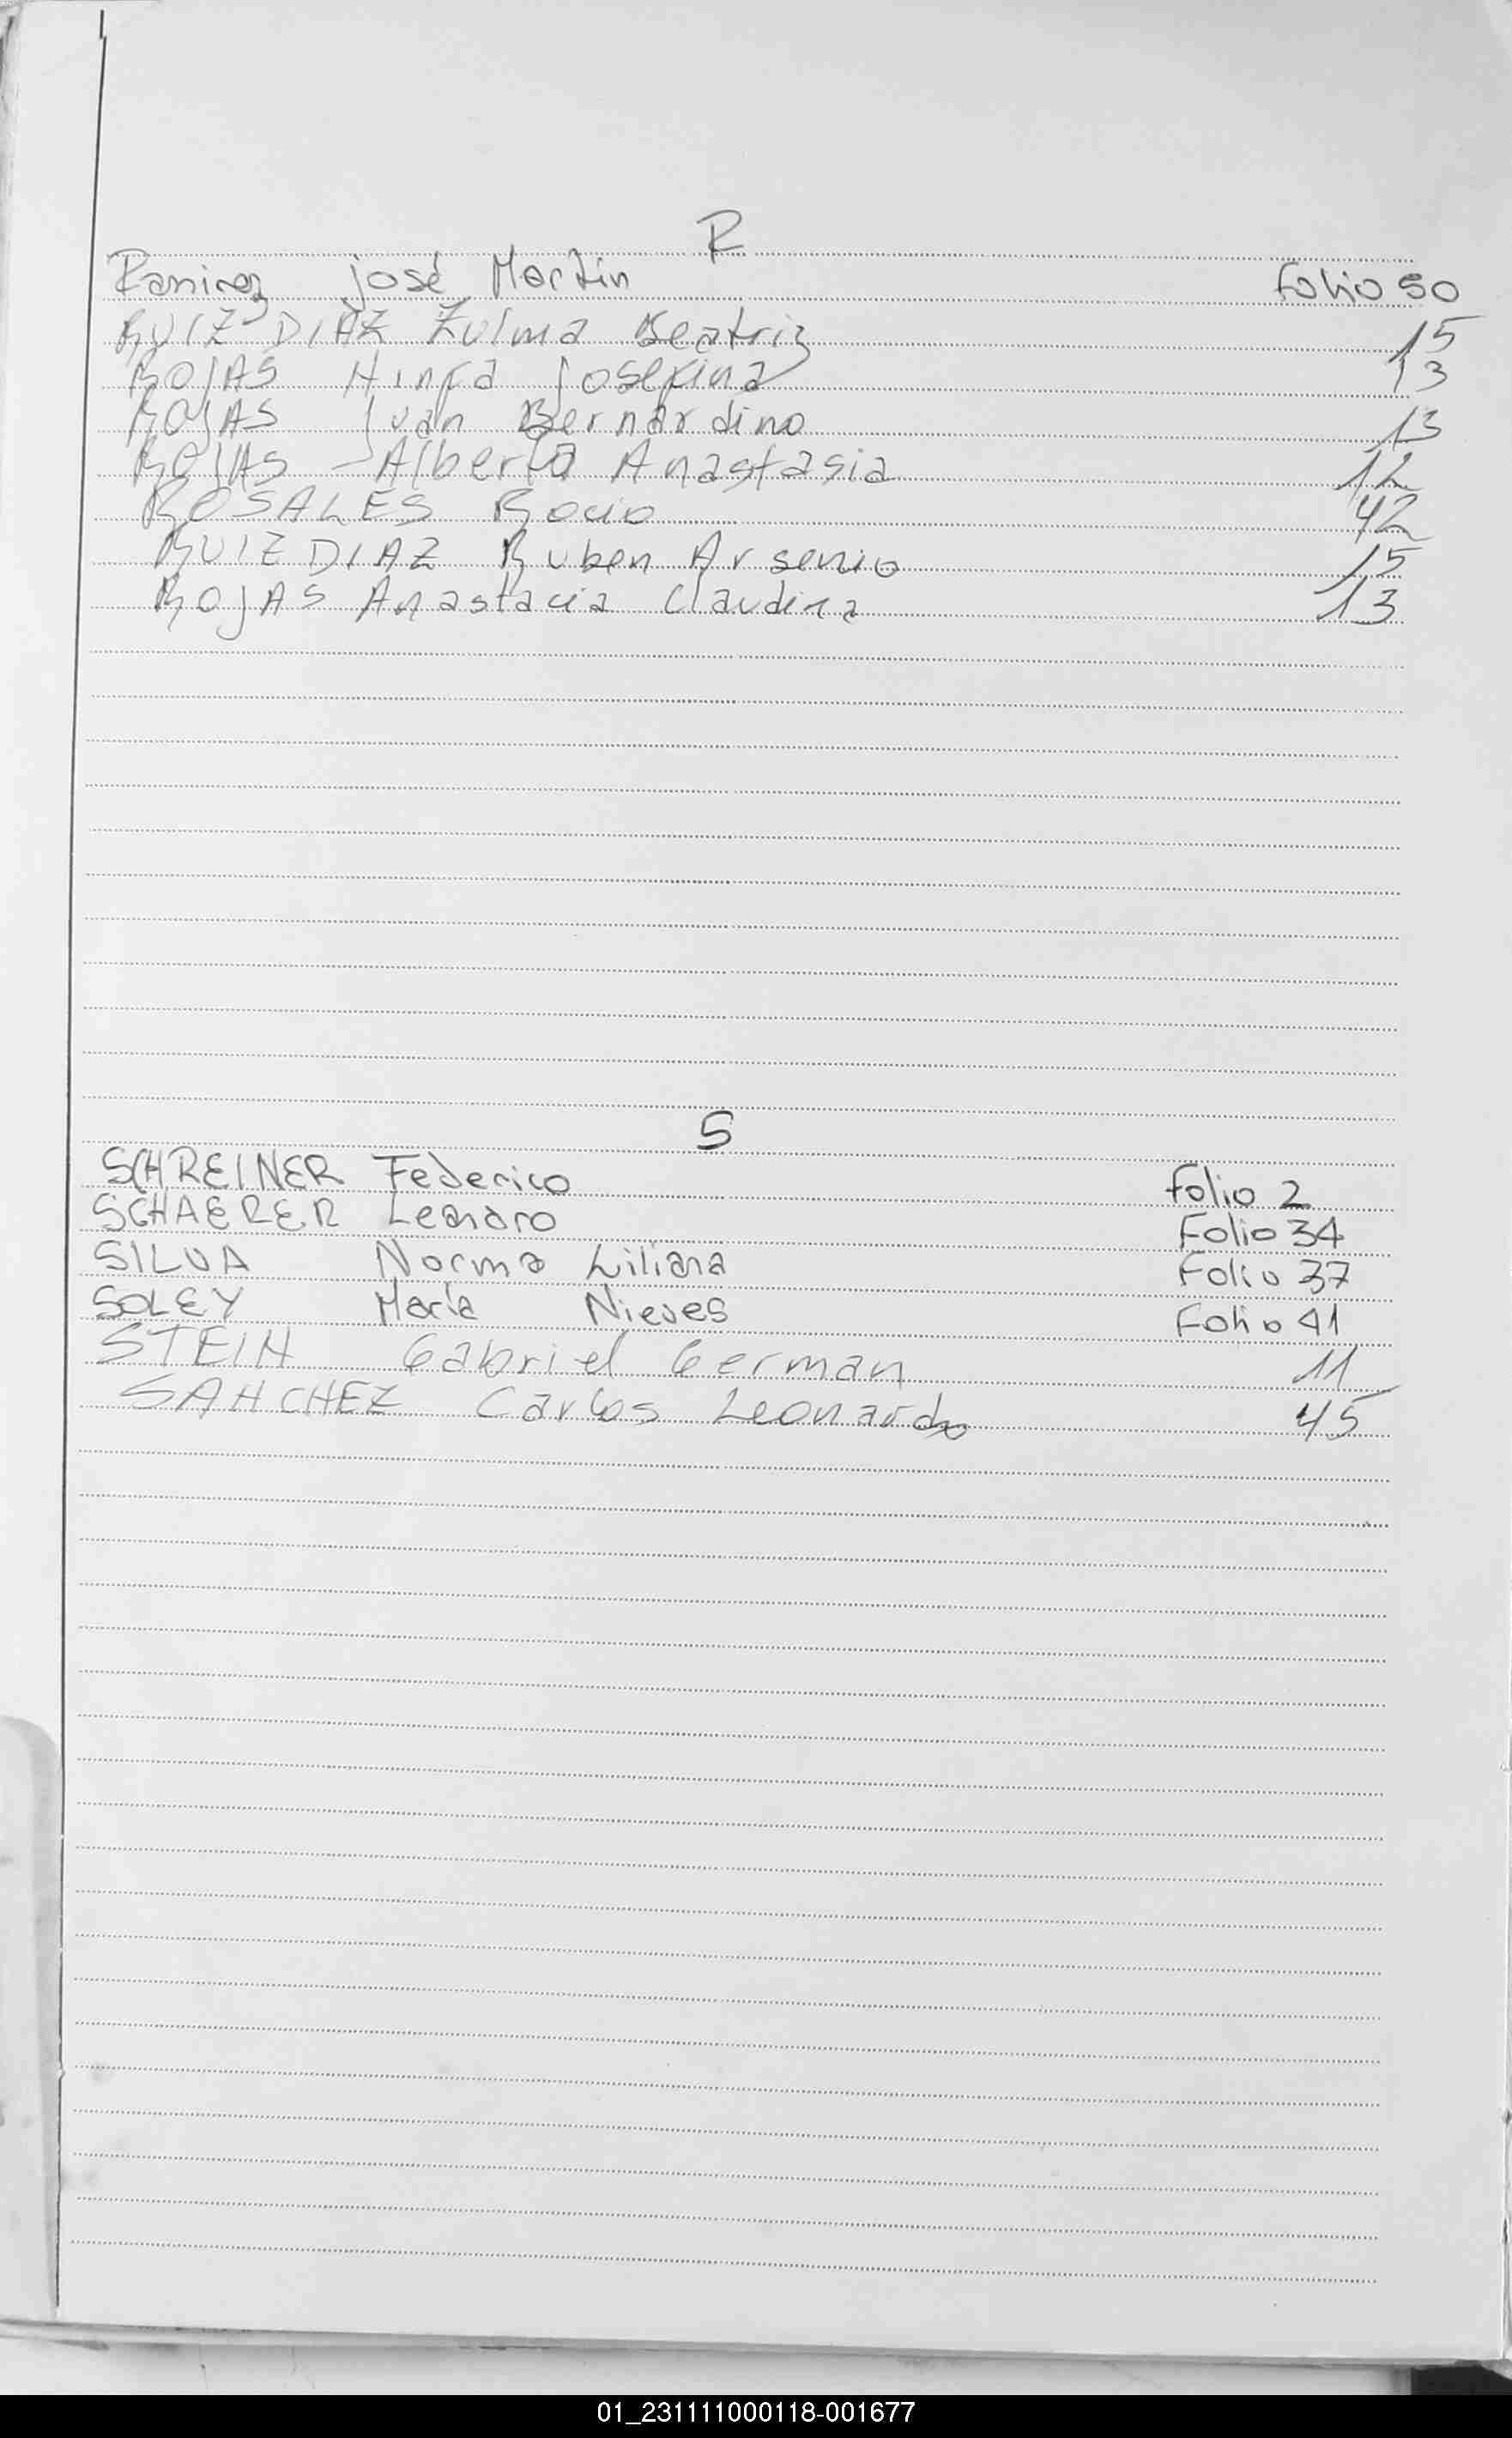 R
Ramirez José Martin Folio 50
RUIZ DIAZ Zulma Beatriz 15
ROJAS Ninfa Josefina 13
ROJAS Juan Bernardino 13
ROJAS Alberta Anastasia 12
ROSALES Rocio 42
RUIZ DIAZ Ruben Arsenio 15
ROJAS Anastacia Claudina 13
S
SCHREINER Federico Folio 2
SCHAERER Leandro Folio 34
SILVA Norma Liliana Folio 37
SOLEY María Nieves Folio 41
STEIN Gabriel German 11
SANCHEZ Carlos Leonardo 45
01_231111000118-001677